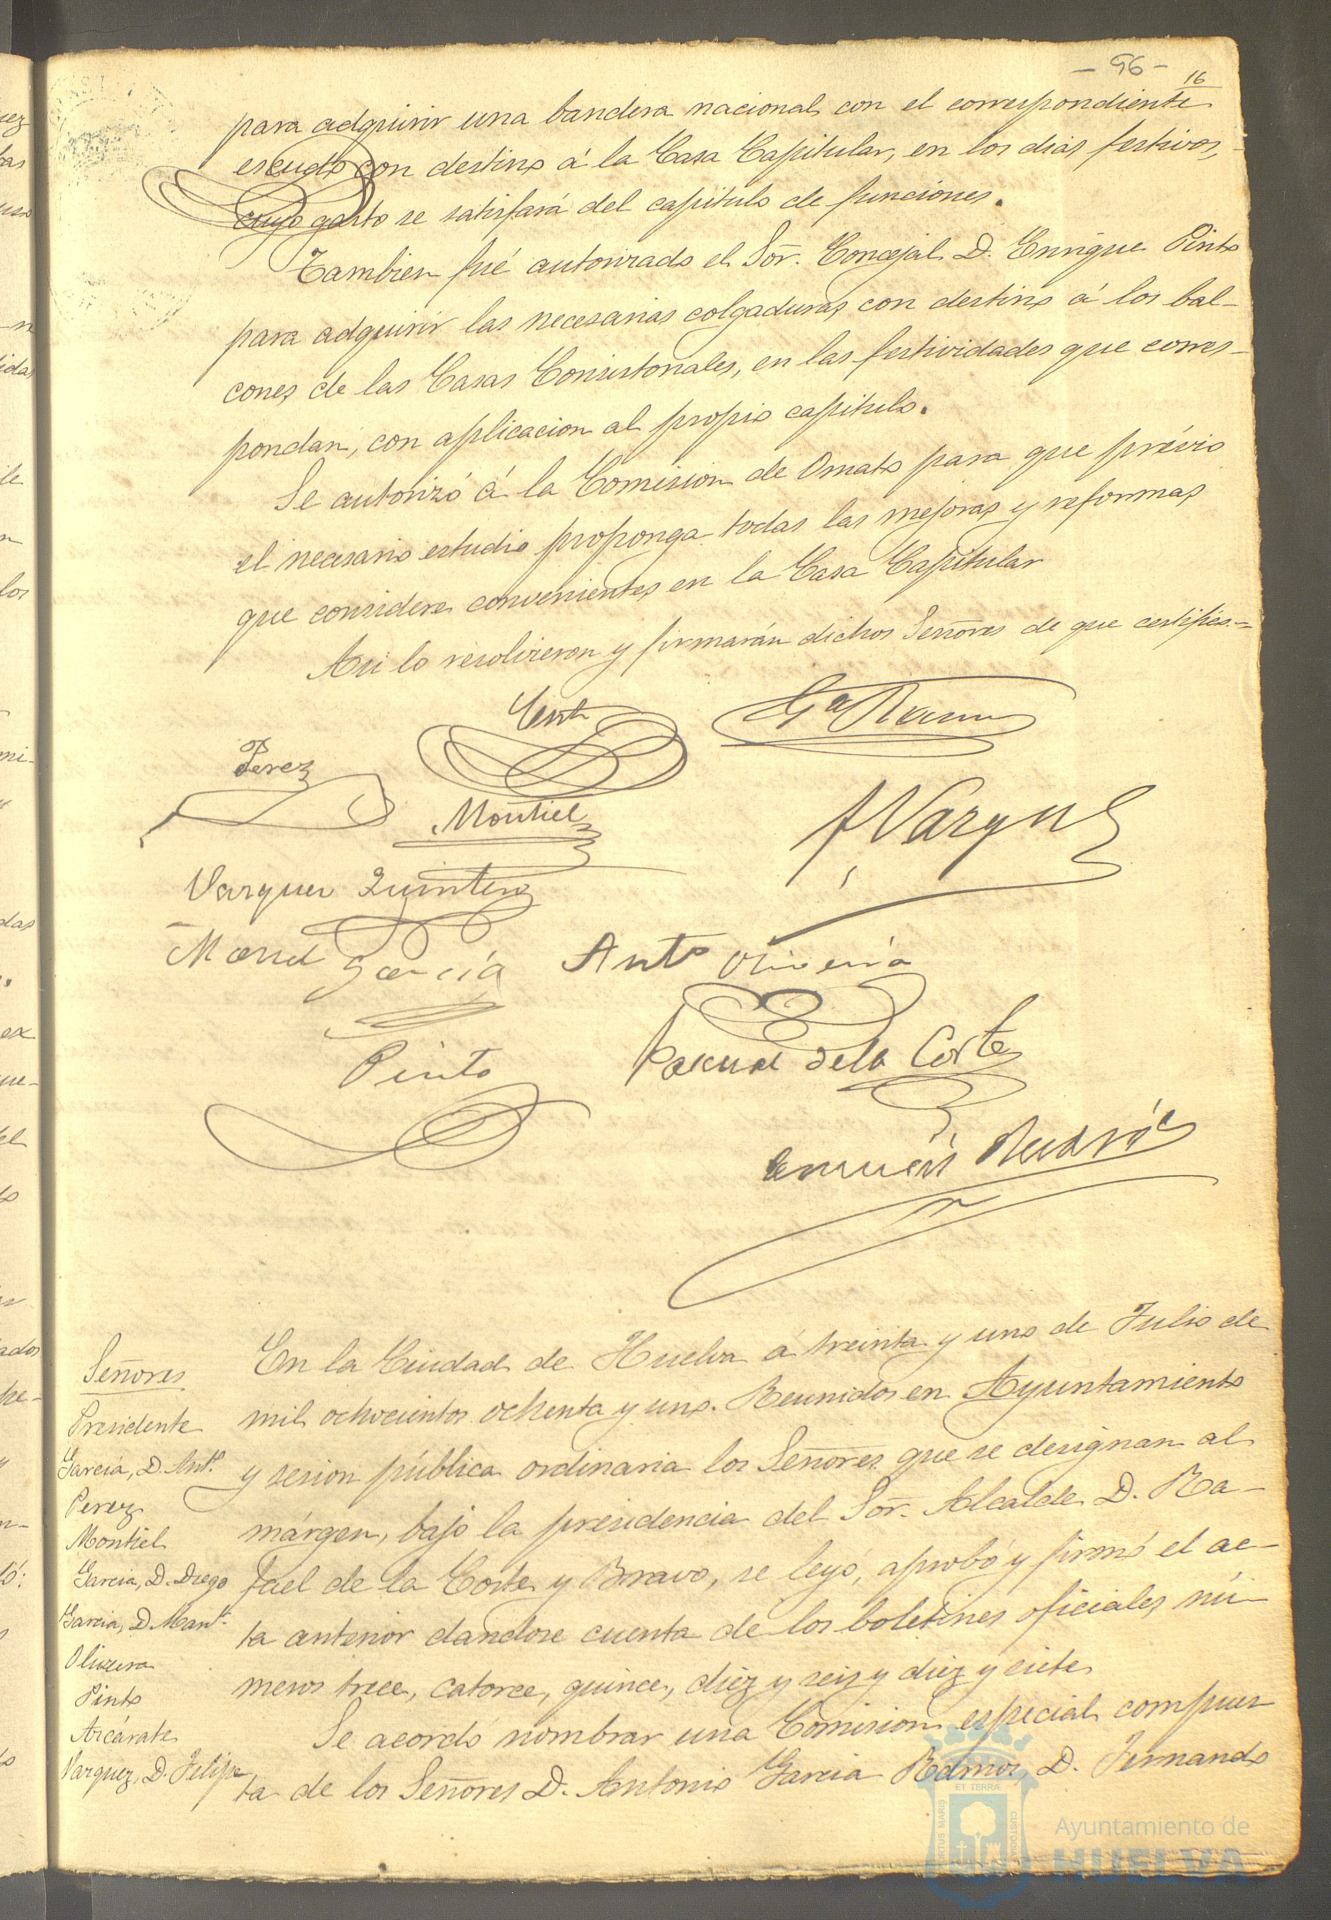 - 96 -
16
para adquirir una bandera nacional con el correspondiente
escudo con destino á la Casa Capitular, en los dias festivos,
cuyo gasto se satisfará del capitulo de funciones.
Tambien fué autorizado el Sor. Concejal D. Enrique Pinto
para adquirir las necesarias colgaduras con destino á los bal-
cones de las Casas Consistoriales, en las festividades que corres-
pondan, con aplicacion al propio capitulo.
Se autorizó á la Comision de Ornato para que prévio
el necesario estudio proponga todas las mejoras y reformas
que considere convenientes en la Casa Capitular
Asi lo resolvieron y firmarán dichos Señores de que certifico.=
Perez
Montiel
F Vazquez
Vazquez Quintero
Manuel García
Anto Oliveira
Pinto
Pascual de la Corte
Señores
Presidente
Garcia, D. Anto.
Perez
Montiel
Garcia, D. Diego
Garcia, D. Manl.
Olivera
Pinto
Azcárate
Vazquez, D. Felipe
En la Ciudad de Huelva á treinta y uno de Julio de
mil ochocientos ochenta y uno. Reunidos en Ayuntamiento
y sesion pública ordinaria los Señores que se designan al
márgen, bajo la presidencia del Sor. Alcalde D. Ra-
fael de la Corte y Bravo, se leyó, aprobó y firmó el ac-
ta anterior dandose cuenta de los boletines oficiales nú-
meros trece, catorce, quince, diez y seis y diez y siete
Se acordó nombrar una Comision especial compues
ta de los Señores D. Antonio Garcia Ramos, D. Fernando
ET TERRA
PORTUS MARIS
CUSTODIA
Ayuntamiento de
HUELVA